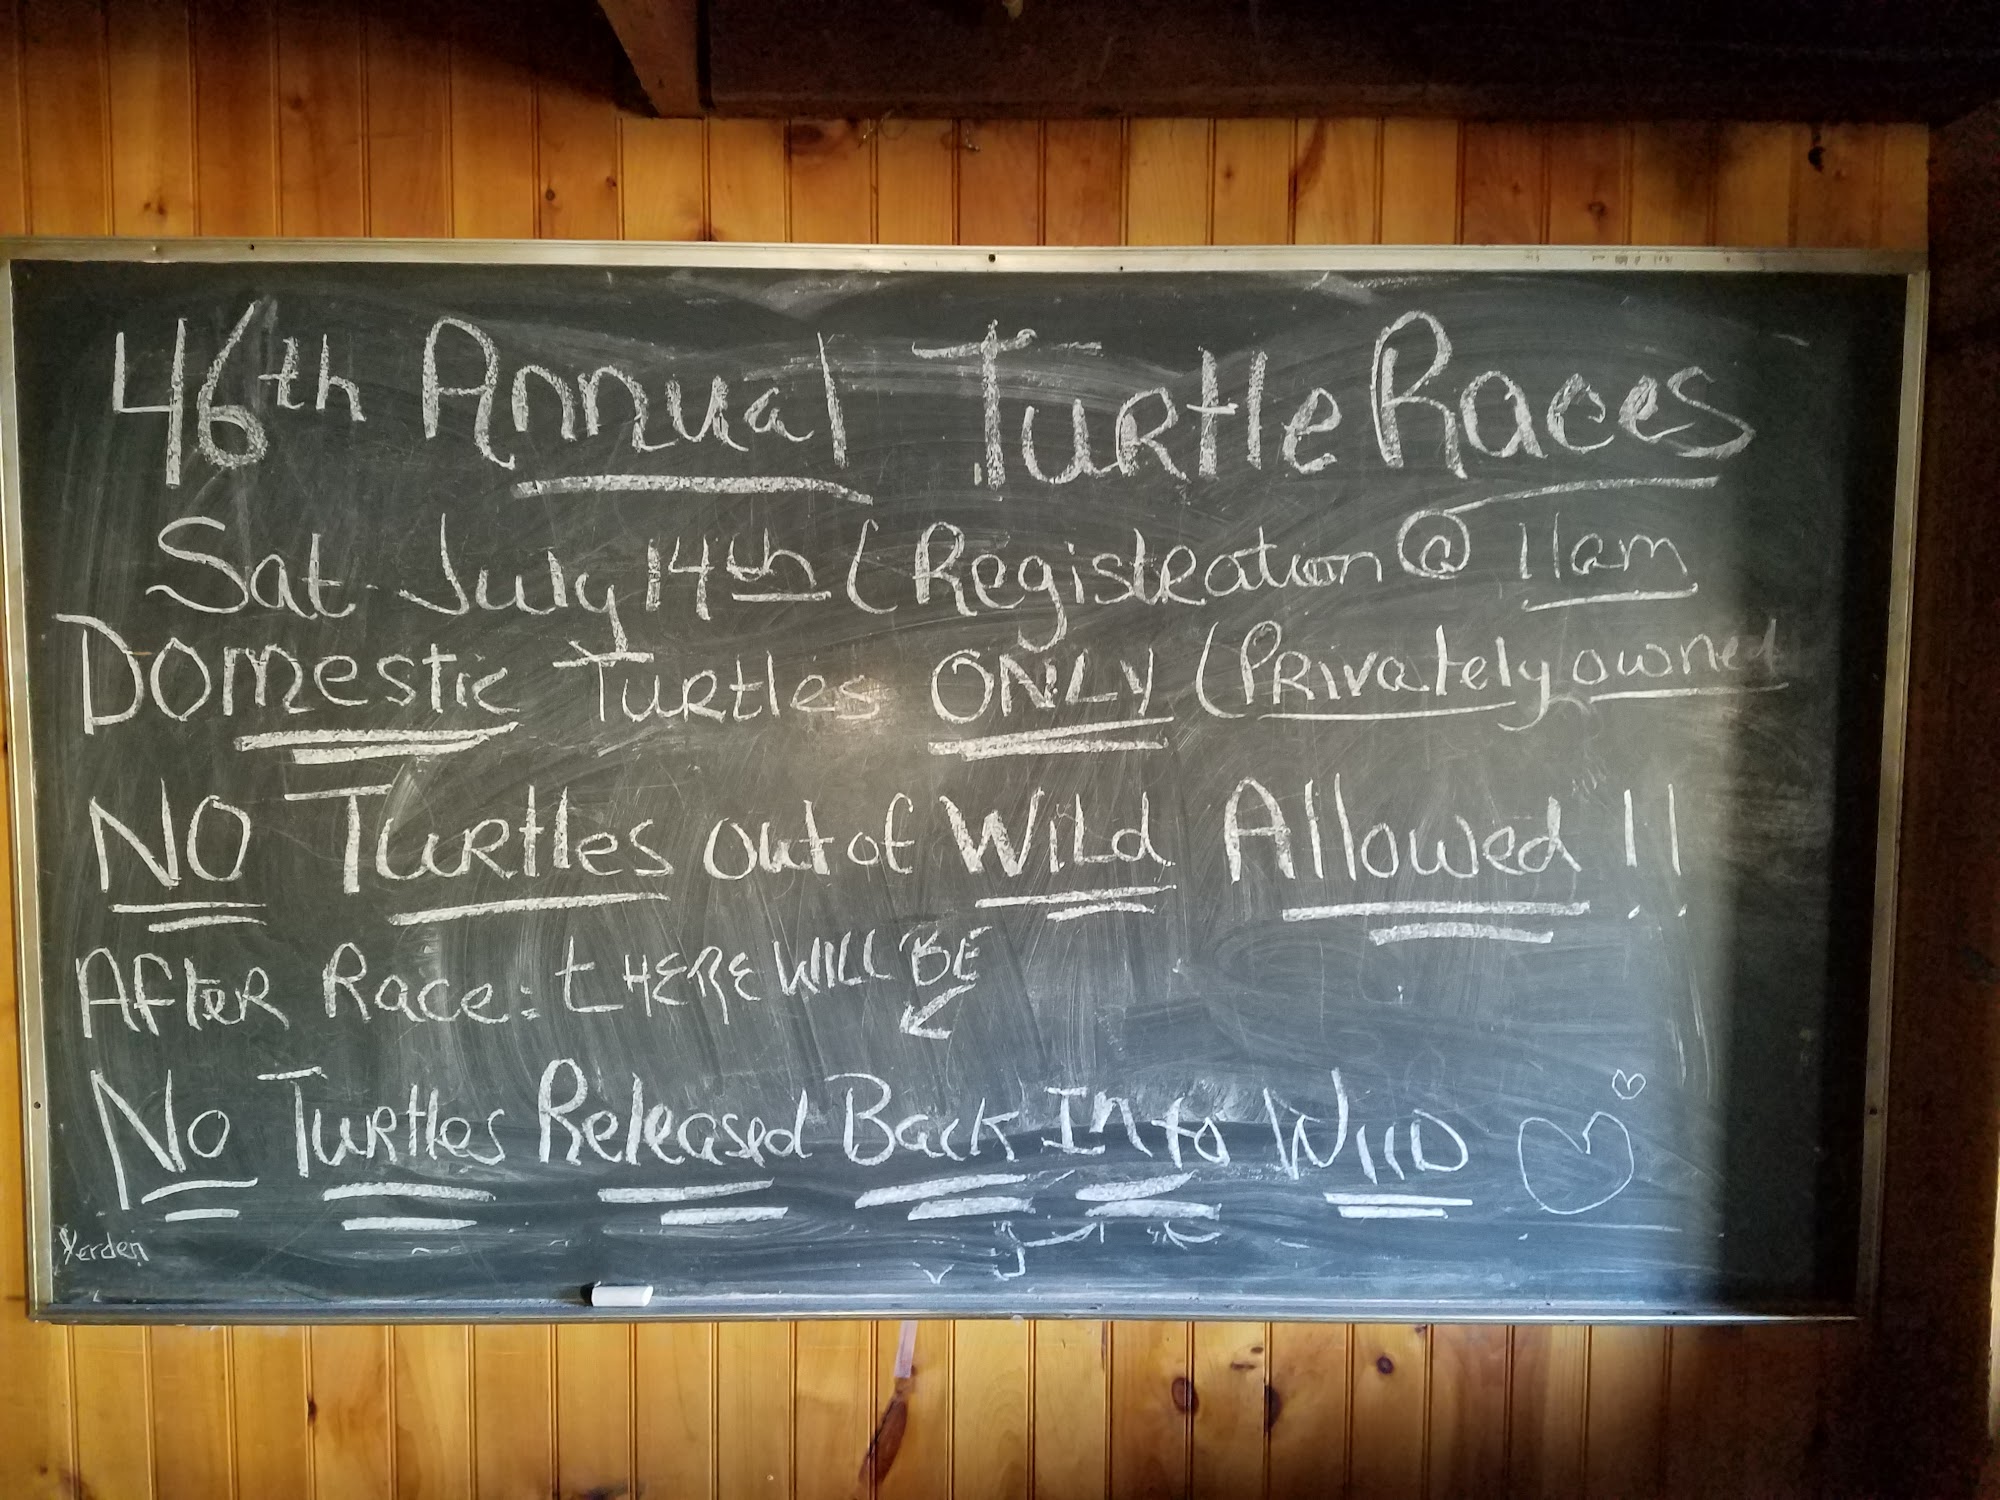 46th Annual Turtle Races
Sat July 14th (Registration @ 11am
Domestic Turtles ONLY (Privately owned
NO Turtles out of Wild Allowed !!
After Race: tHERE WILL BE
No Turtles Released Back Into Wild